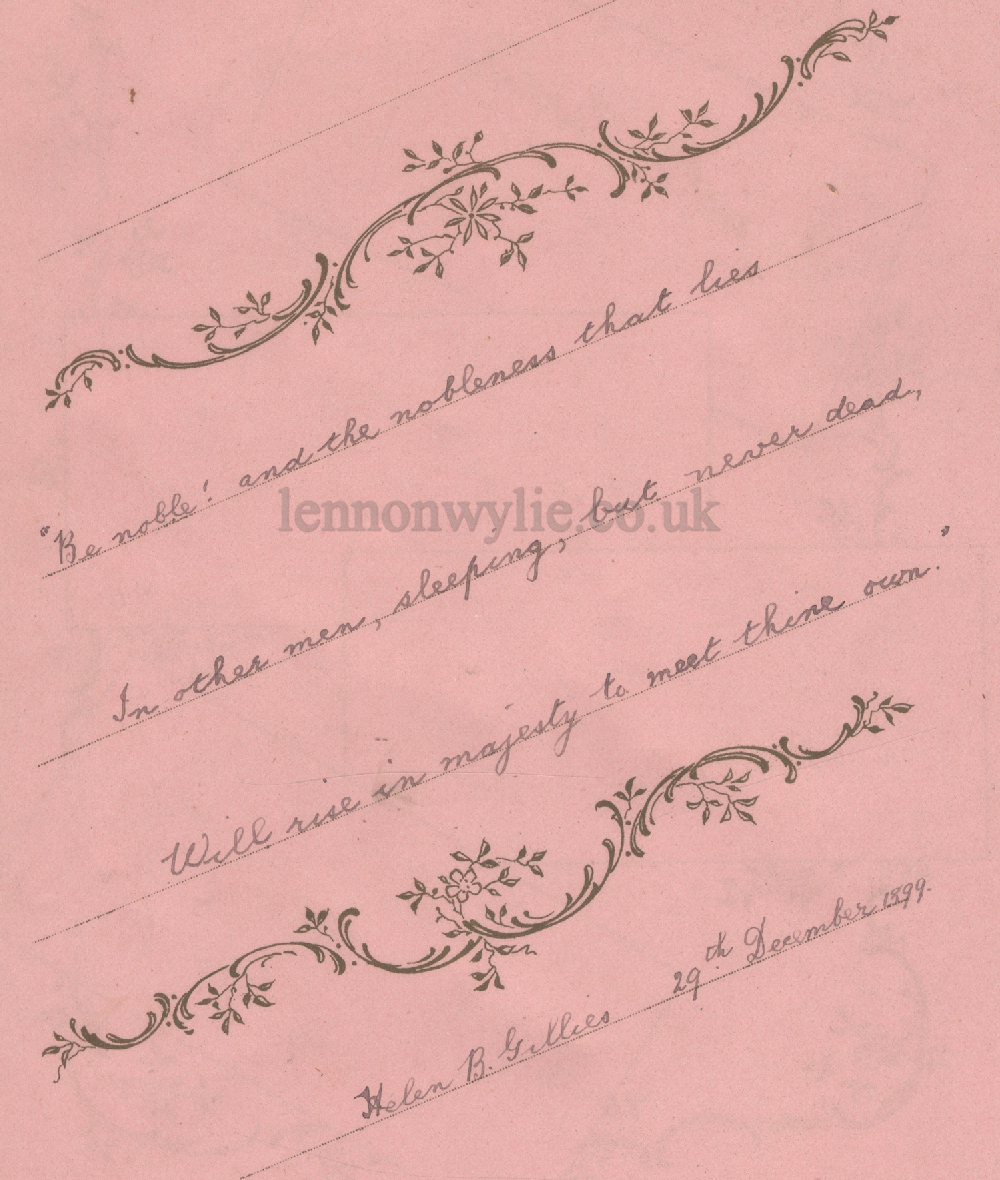 "Be noble! and the nobleness that lies
lennonwylie.co.uk
In other men, sleeping, but never dead,
Will rise in majesty to meet thine own."
Helen B. Gillies 29th December 1899.